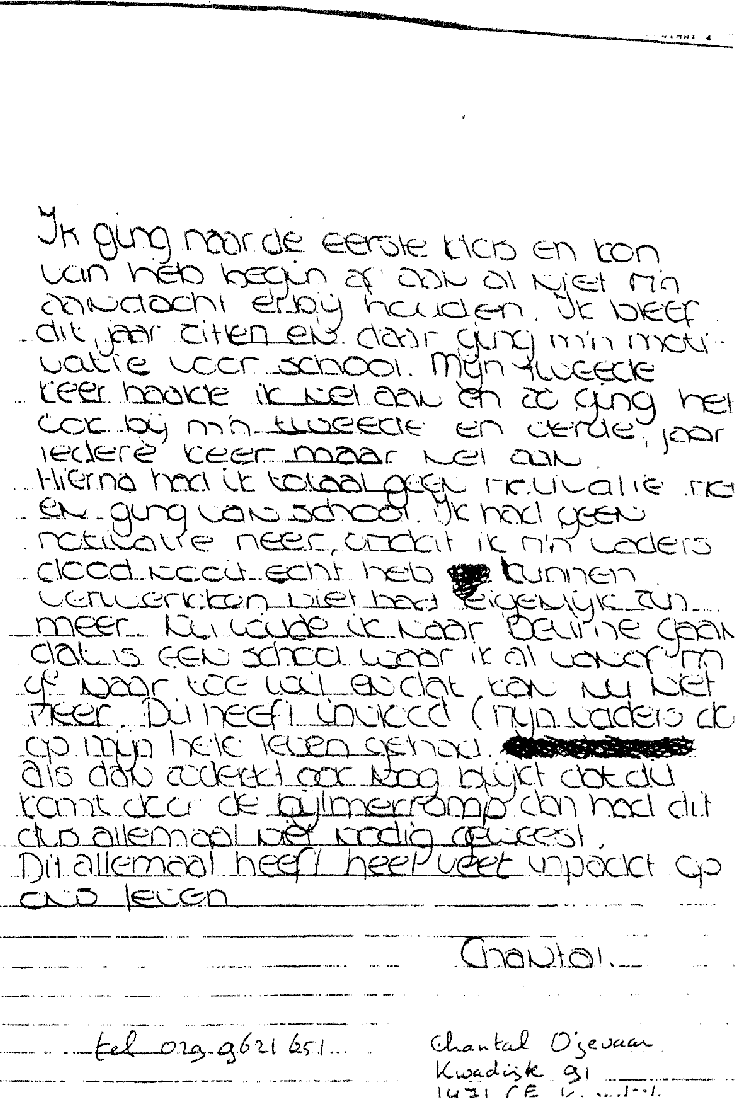 Ik ging naar de eerste klas en kon
van heb begin af aan al niet m'n
aandacht erbij houden. Ik bleef
dit jaar zitten en daar ging m'n moti-
vatie voor school. Mijn tweede
keer haakte ik wel aan en zo ging het
ook bij m'n tweede en derde jaar
iedere keer maar wel aan.
Hierna had ik totaal geen motivatie
en ging van school. Ik had geen
motivatie meer, omdat ik m'n vaders
dood nooit echt heb kunnen
verwerken niet had eigenlijk zin
meer. Nu woude ik naar Deurne gaan
dat is een school waar ik al vanaf m'n
naar toe wil en dat kan nu niet
meer. Dit heeft invloed (mijn vaders do
op mijn hele leven gehad.
als dan zodirekt ook nog blijkt dat dit
komt door de bijlmerramp dan had dit
dus allemaal niet nodig geweest.
Dit allemaal heeft heel veel inpackt op
ons leven
Chantal.
tel 029.9621651
Chantal Ojevaar
Kwadijk 91
1471 CE